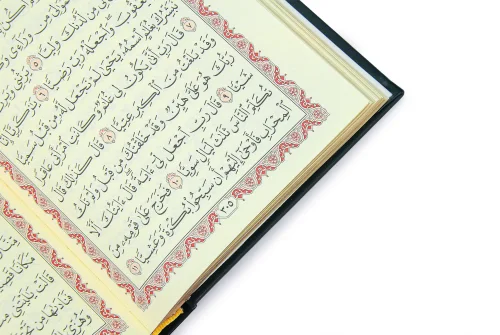 مِن لَّدُنكَ وَلِيًّا ٥ يَرِثُنِي
يَعْقُوبَ وَٱجْعَلْهُ رَبِّ رَضِيًّا ٦ يَٰزَكَرِيَّآ إِنَّا
نُبَشِّرُكَ بِغُلَٰمٍ ٱسْمُهُۥ يَحْيَىٰ لَمْ نَجْعَل لَّهُۥ مِن قَبْلُ سَمِيًّا
٧ قَالَ رَبِّ أَنَّىٰ يَكُونُ لِي غُلَٰمٌ وَكَانَتِ ٱمْرَأَتِي عَاقِرًا
وَقَدْ بَلَغْتُ مِنَ ٱلْكِبَرِ عِتِيًّا ٨ قَالَ كَذَٰلِكَ قَالَ
رَبُّكَ هُوَ عَلَيَّ هَيِّنٌ وَقَدْ خَلَقْتُكَ مِن قَبْلُ وَلَمْ تَكُ
شَيْـًٔا ٩ قَالَ رَبِّ ٱجْعَل لِّيٓ ءَايَةً قَالَ ءَايَتُكَ أَلَّا
تُكَلِّمَ ٱلنَّاسَ ثَلَٰثَ لَيَالٍ سَوِيًّا ١٠ فَخَرَجَ عَلَىٰ قَوْمِهِۦ مِنَ
ٱلْمِحْرَابِ فَأَوْحَىٰٓ إِلَيْهِمْ أَن سَبِّحُوا۟ بُكْرَةً وَعَشِيًّا ١١
٣٠٥